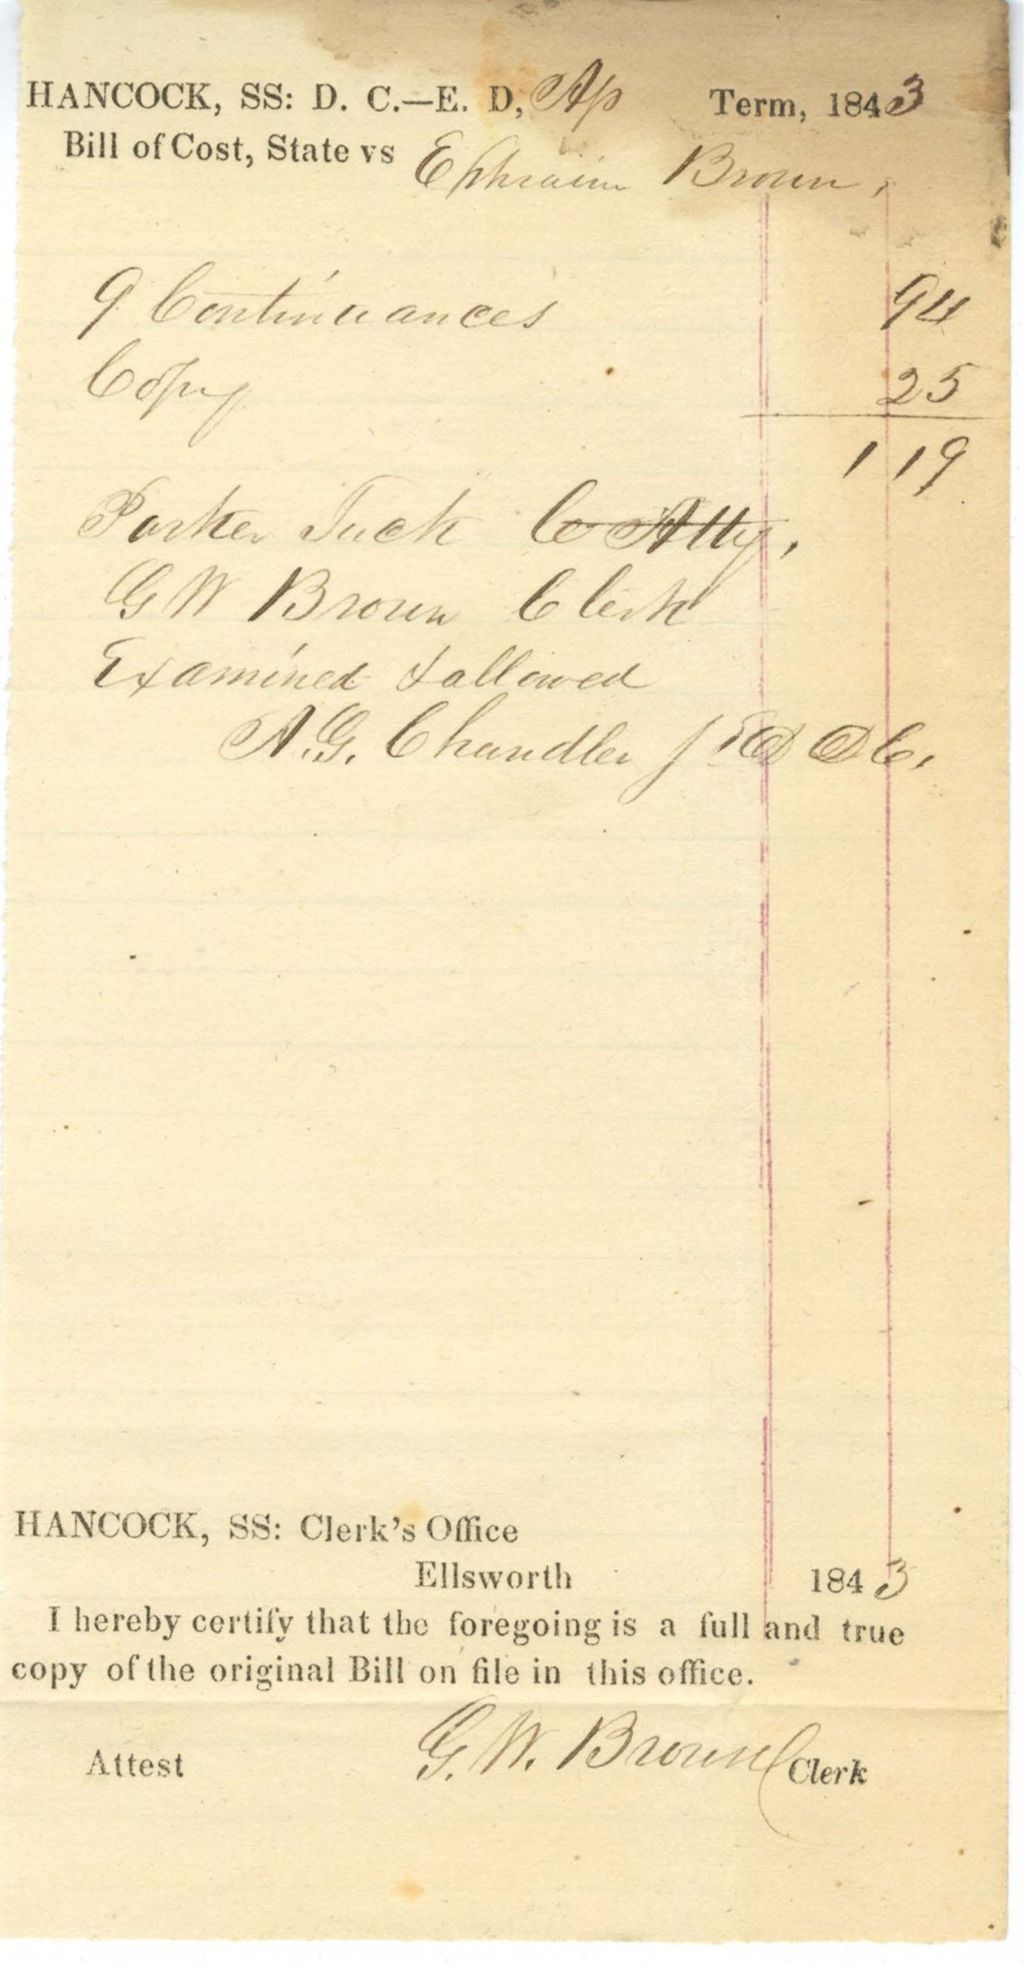 HANCOCK, SS: D. C.—E. D, Ap Term, 1843
Bill of Cost, State vs Ephraim Brown,
9 Continuances 94
Copy 25
1 19
Parker Tuck Co Atty,
G W Brown Clerk
Examined & allowed
A. G. Chandler J E D D C.
HANCOCK, SS: Clerk's Office
Ellsworth 1843
I hereby certify that the foregoing is a full and true
copy of the original Bill on file in this office.
Attest G. W. Brown Clerk